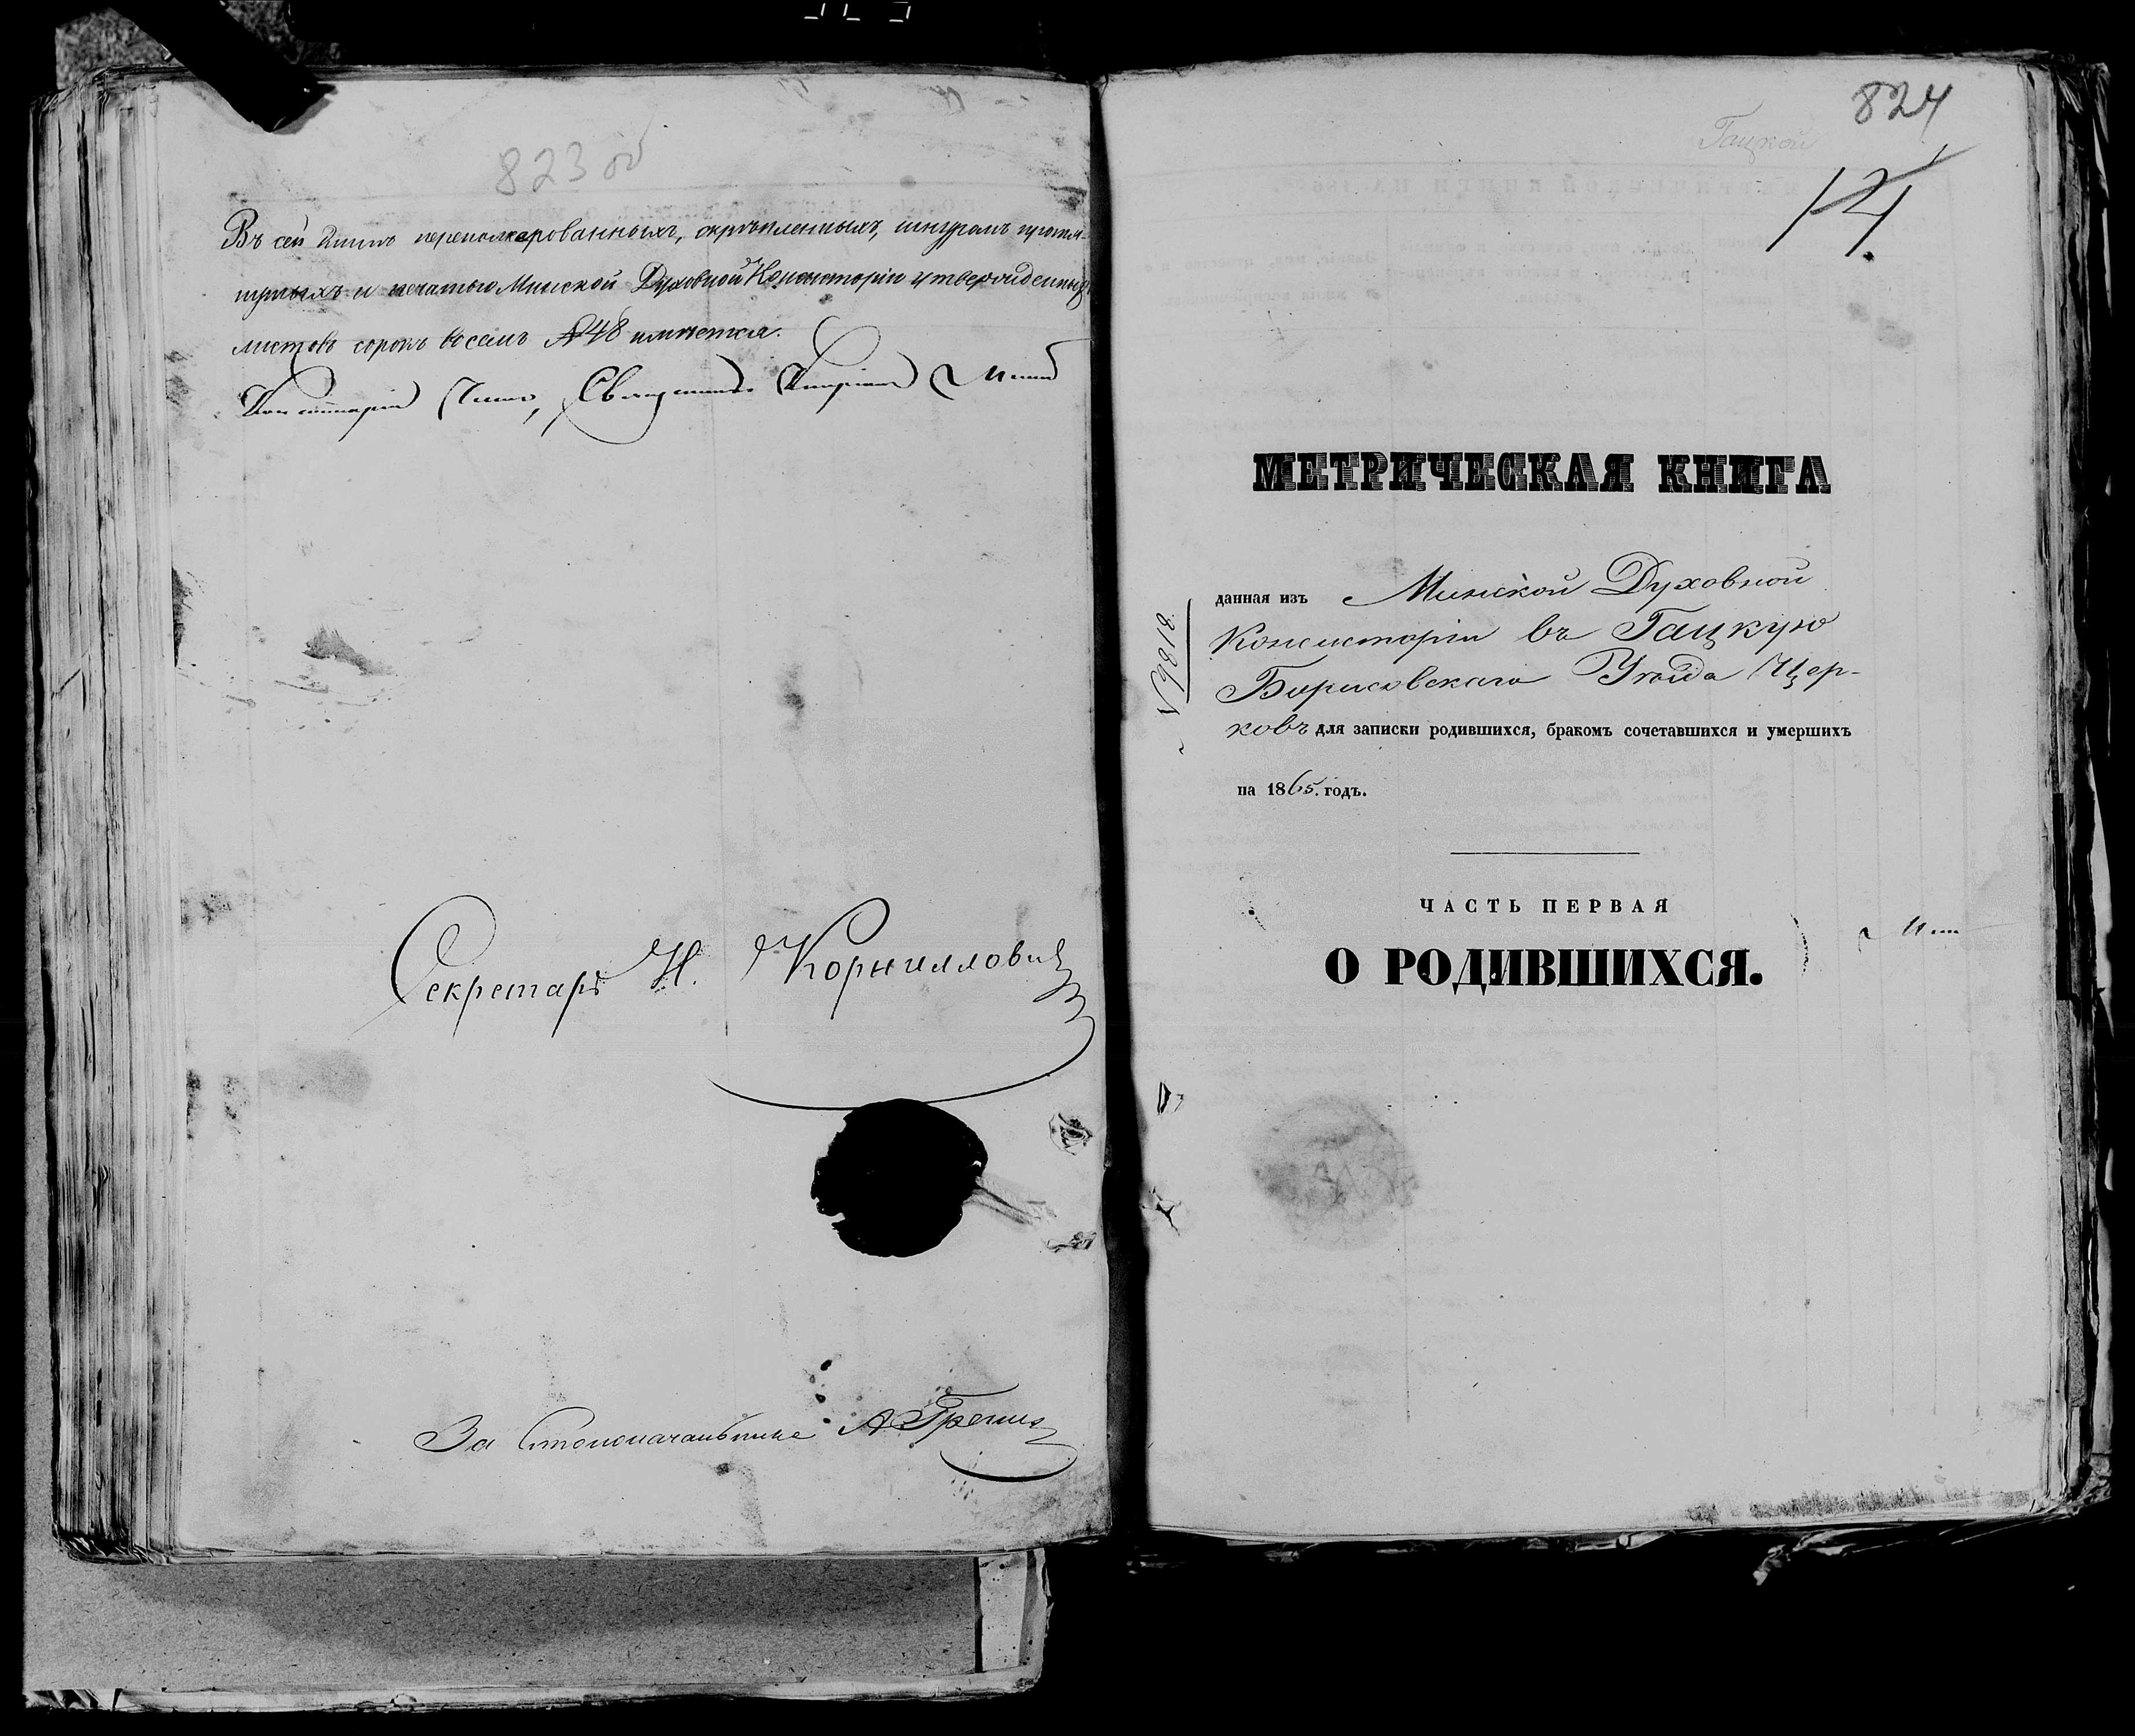 823 об
Въ сей книгѣ перенумерованныхъ, скрѣпленныхъ, шнуромъ протя-
нутыхъ и печатью Минской Духовной Консисторіи утвержденныхъ
листовъ сорокъ восемь № 48 имѣется.
Консисторіи Членъ, Священникъ
Секретарь Н. Корниллович
За Столоначальника А
824
Гацкой
14.
МЕТРИЧЕСКАЯ КНИГА
данная изъ Минской Духовной
Консисторіи въ Гацкую
Борисовскаго Уѣзда Цер-
ковь для записки родившихся, бракомъ сочетавшихся и умершихъ
на 1865. годъ.
№ 9818.
ЧАСТЬ ПЕРВАЯ
О РОДИВШИХСЯ.